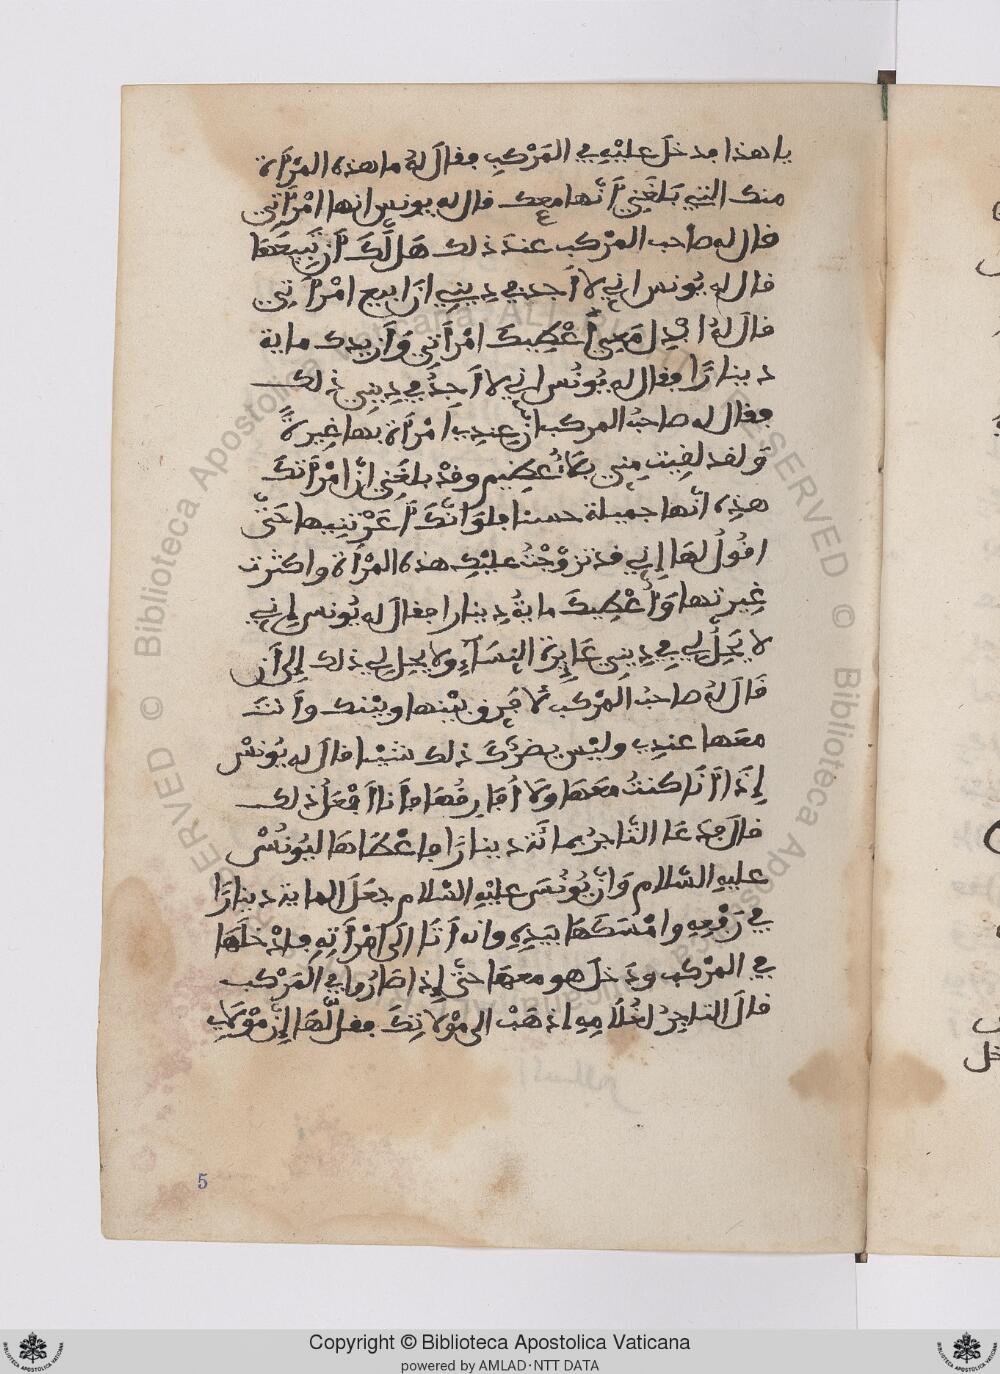 يا هذا فدخل عليْهِ في المَرْكبِ فقالَ لهُ ما هذه المَرْأة
منك التي بَلغَنِي أنّها معك قال له يونس انها امْرَأتِي
قال له صاحب المرْكب عندَ ذلك هَل لَّكَ أن تَبِيعَهَا
قال له يُونس اني لا أجد في دِيني ان ابيع امْرَأتِي
قالَ لهُ ابْدِل مَعِي أعْطِيكَ امْرَأتِي وَأزيدك ماية
دينارًا فقال له يُونُس اني لا أجِدُ في دِيني ذلك
فقال له صاحبُ المركب انّ عندِي امْرَأة بها غِيرةً
وَلقد لقِيت مِني بلاءً عظِيم وقدْ بلغَنِي انّ امْرَأتكَ
هذِه انّها جميلة حسنا فلوَ انّكَ أعَرْتنِيها حَتّى
اقُولُ لهَا إني قد تزوّجْتُ عليْكِ هذه المرْأة واكثرت
غِيرتها وَأعْطِيكَ مايةُ دِينارا فقالَ له يُونس إني
لا يَحِلُّ لِي في دِيني عَايرة النسَآءِ ولا يحِل لي ذلك إلى أن
قَالَ لهُ صاحبُ المرْكب لا أفرق بيْنها وبيْنك وأنتَ
معَها عندِي وليْس يضرّكَ ذلك شيْئا قال له يُونسْ
إذَا أنَا كنتُ معَهَا وَلا أفارقُهَا فأنا أفْعَلُ ذلك
قال فدَعَا التّاجرُ بمائة دينارًا فأعْطَاهَا ليُونُسْ
عليهِ السّلام وَانّ يُونُسَ عليْهِ السّلام جعَلَ الماية دينارًا
في وَامْسَكَهَا بيَدِهِ وانه أتَا الَى امْرَأتِهِ فأدْخلَهَا
في المرْكب ودَخلَ هو معهَا حتّى إذا صَارُوا في المَرْكب
قالَ التاجرُ لغُلامِهِ اذهَبْ الى مَوْلاتِكَ فقل لَّهَا إنّ مَوْلاي
5
Copyright © Biblioteca Apostolica Vaticana
powered by AMLAD·NTT DATA